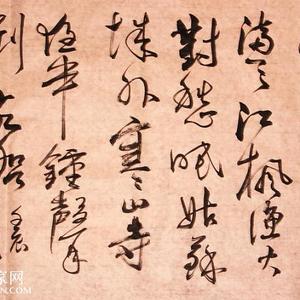 滿天江楓漁火
對愁眠姑蘇
城外寒山寺
夜半鐘聲
到客船
网
.COM